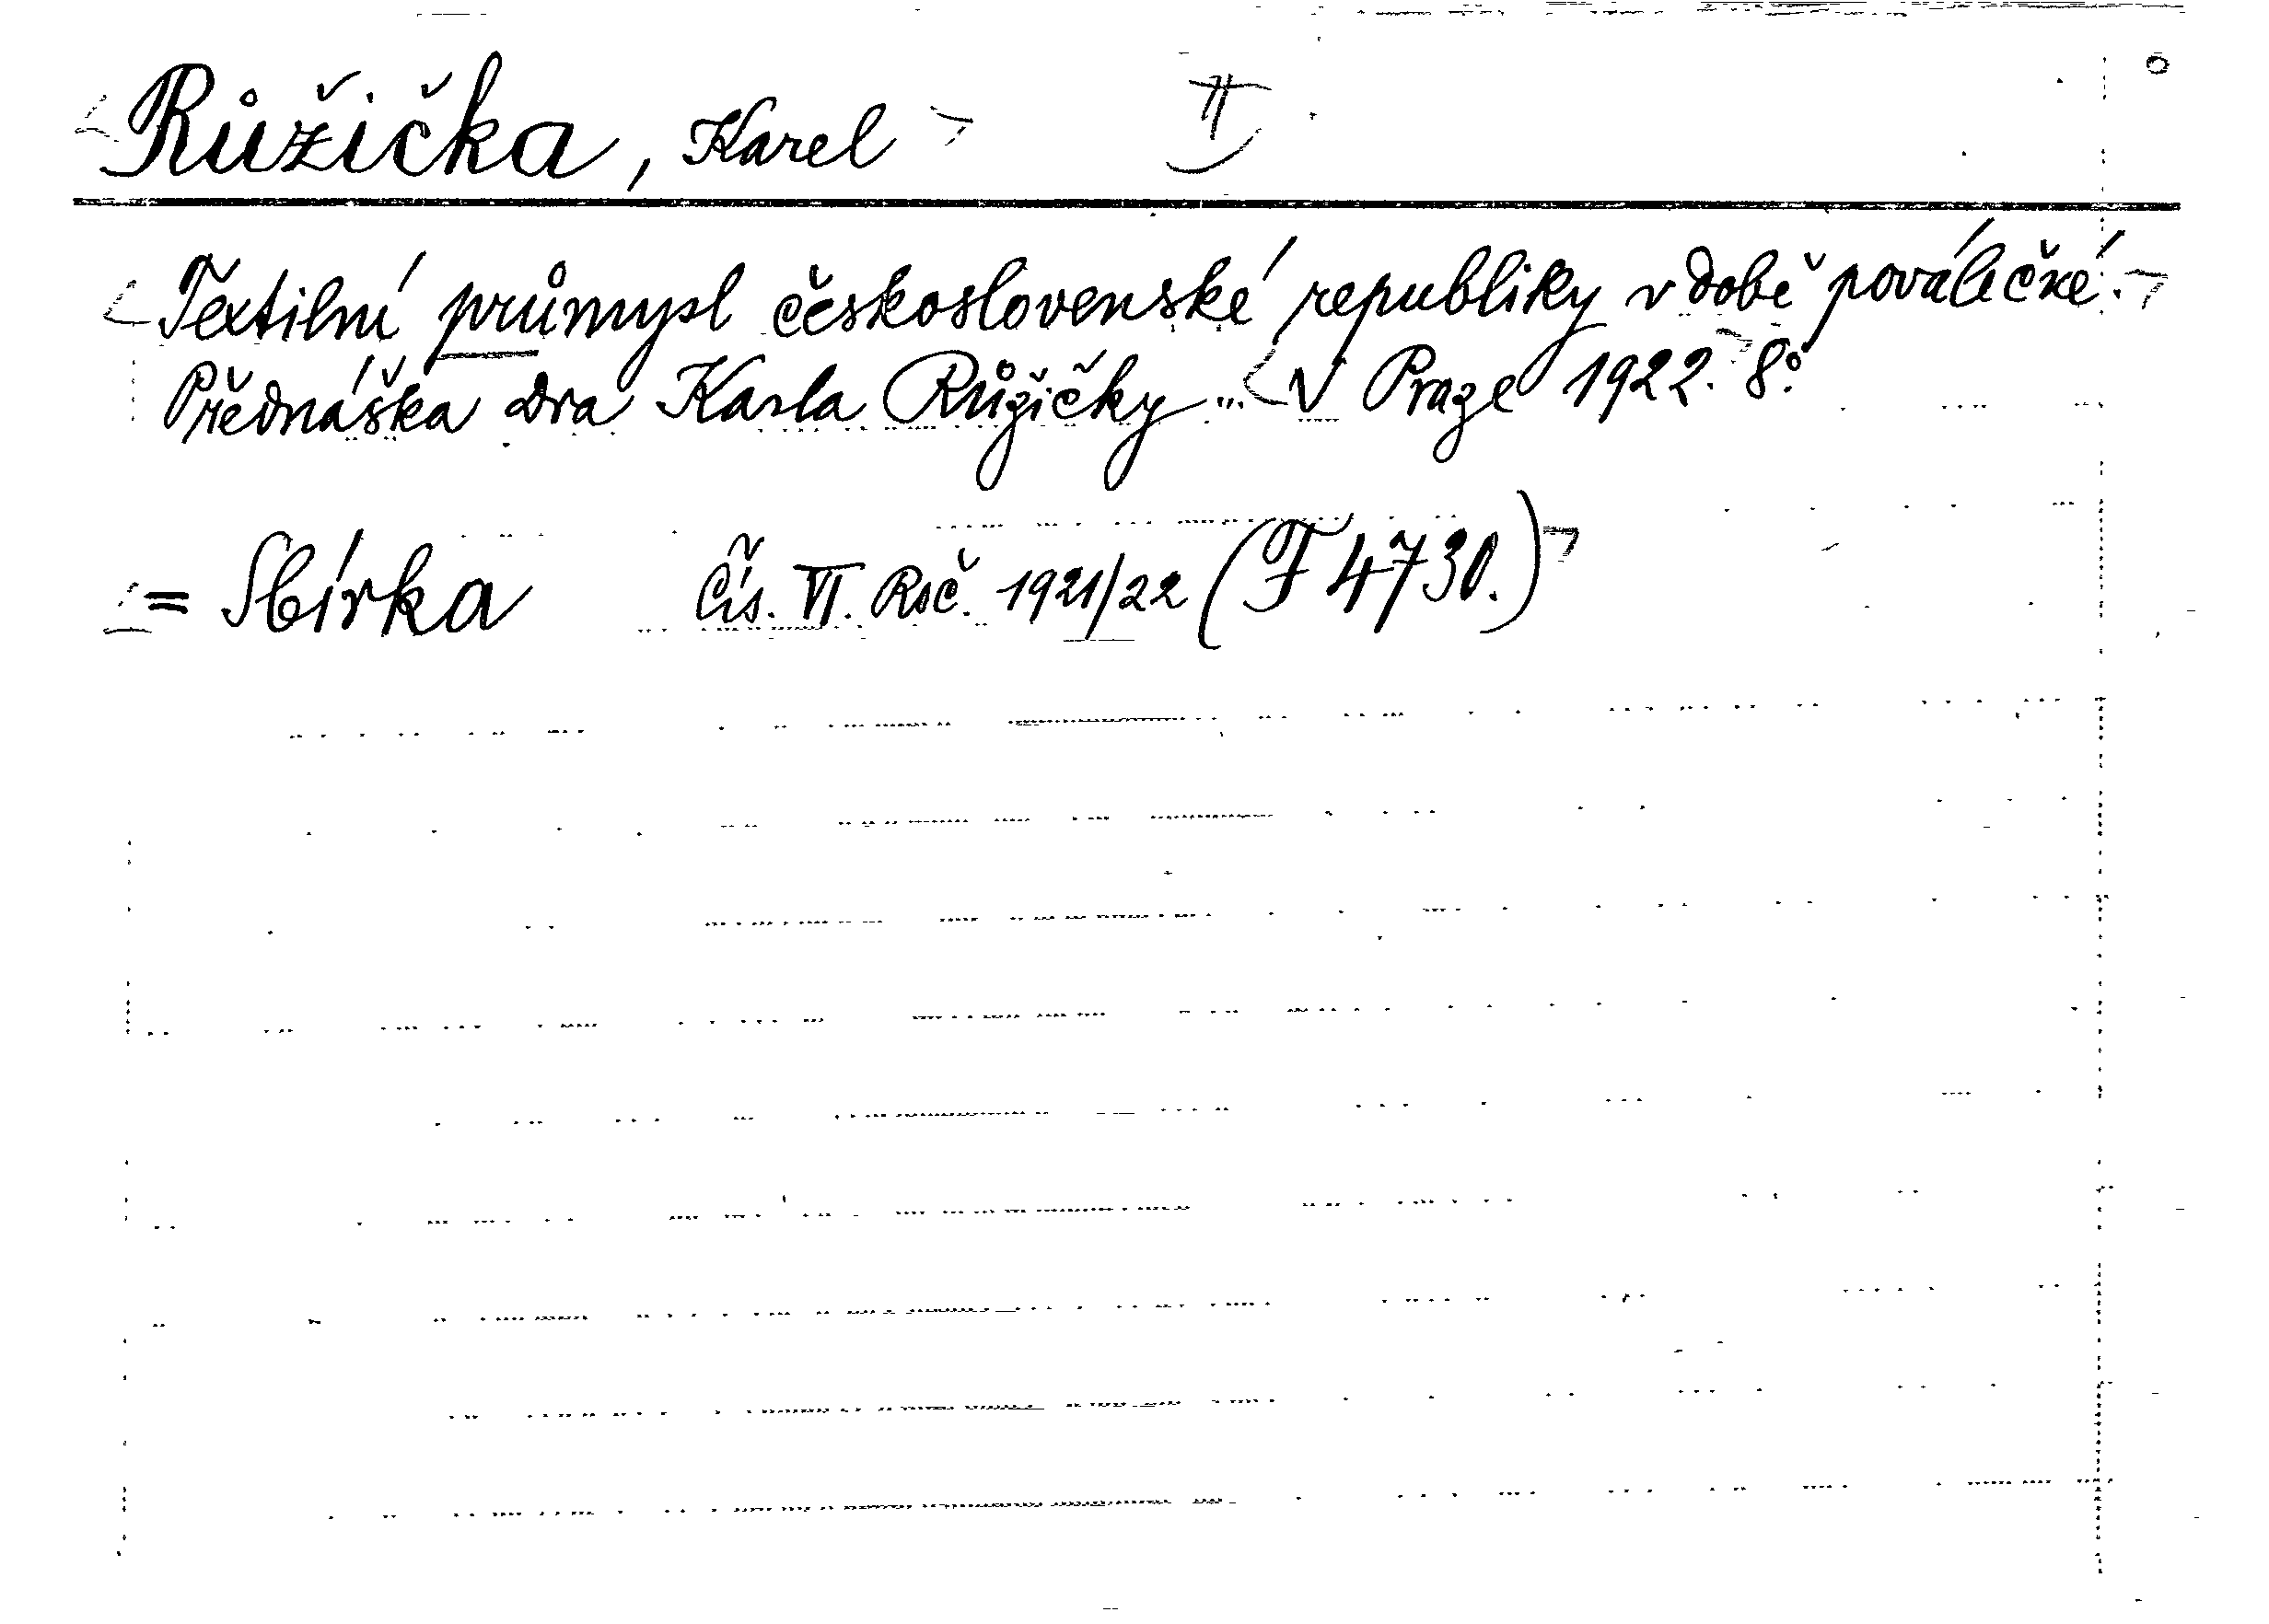 Růžička, Karel II
Textilní průmysl československé republiky v době poválečné.
Přednáška Dra Karla Růžičky... V Praze 1922. 8°
= Sbírka Čís. VI. Roč. 1921/22 (F 4730.)